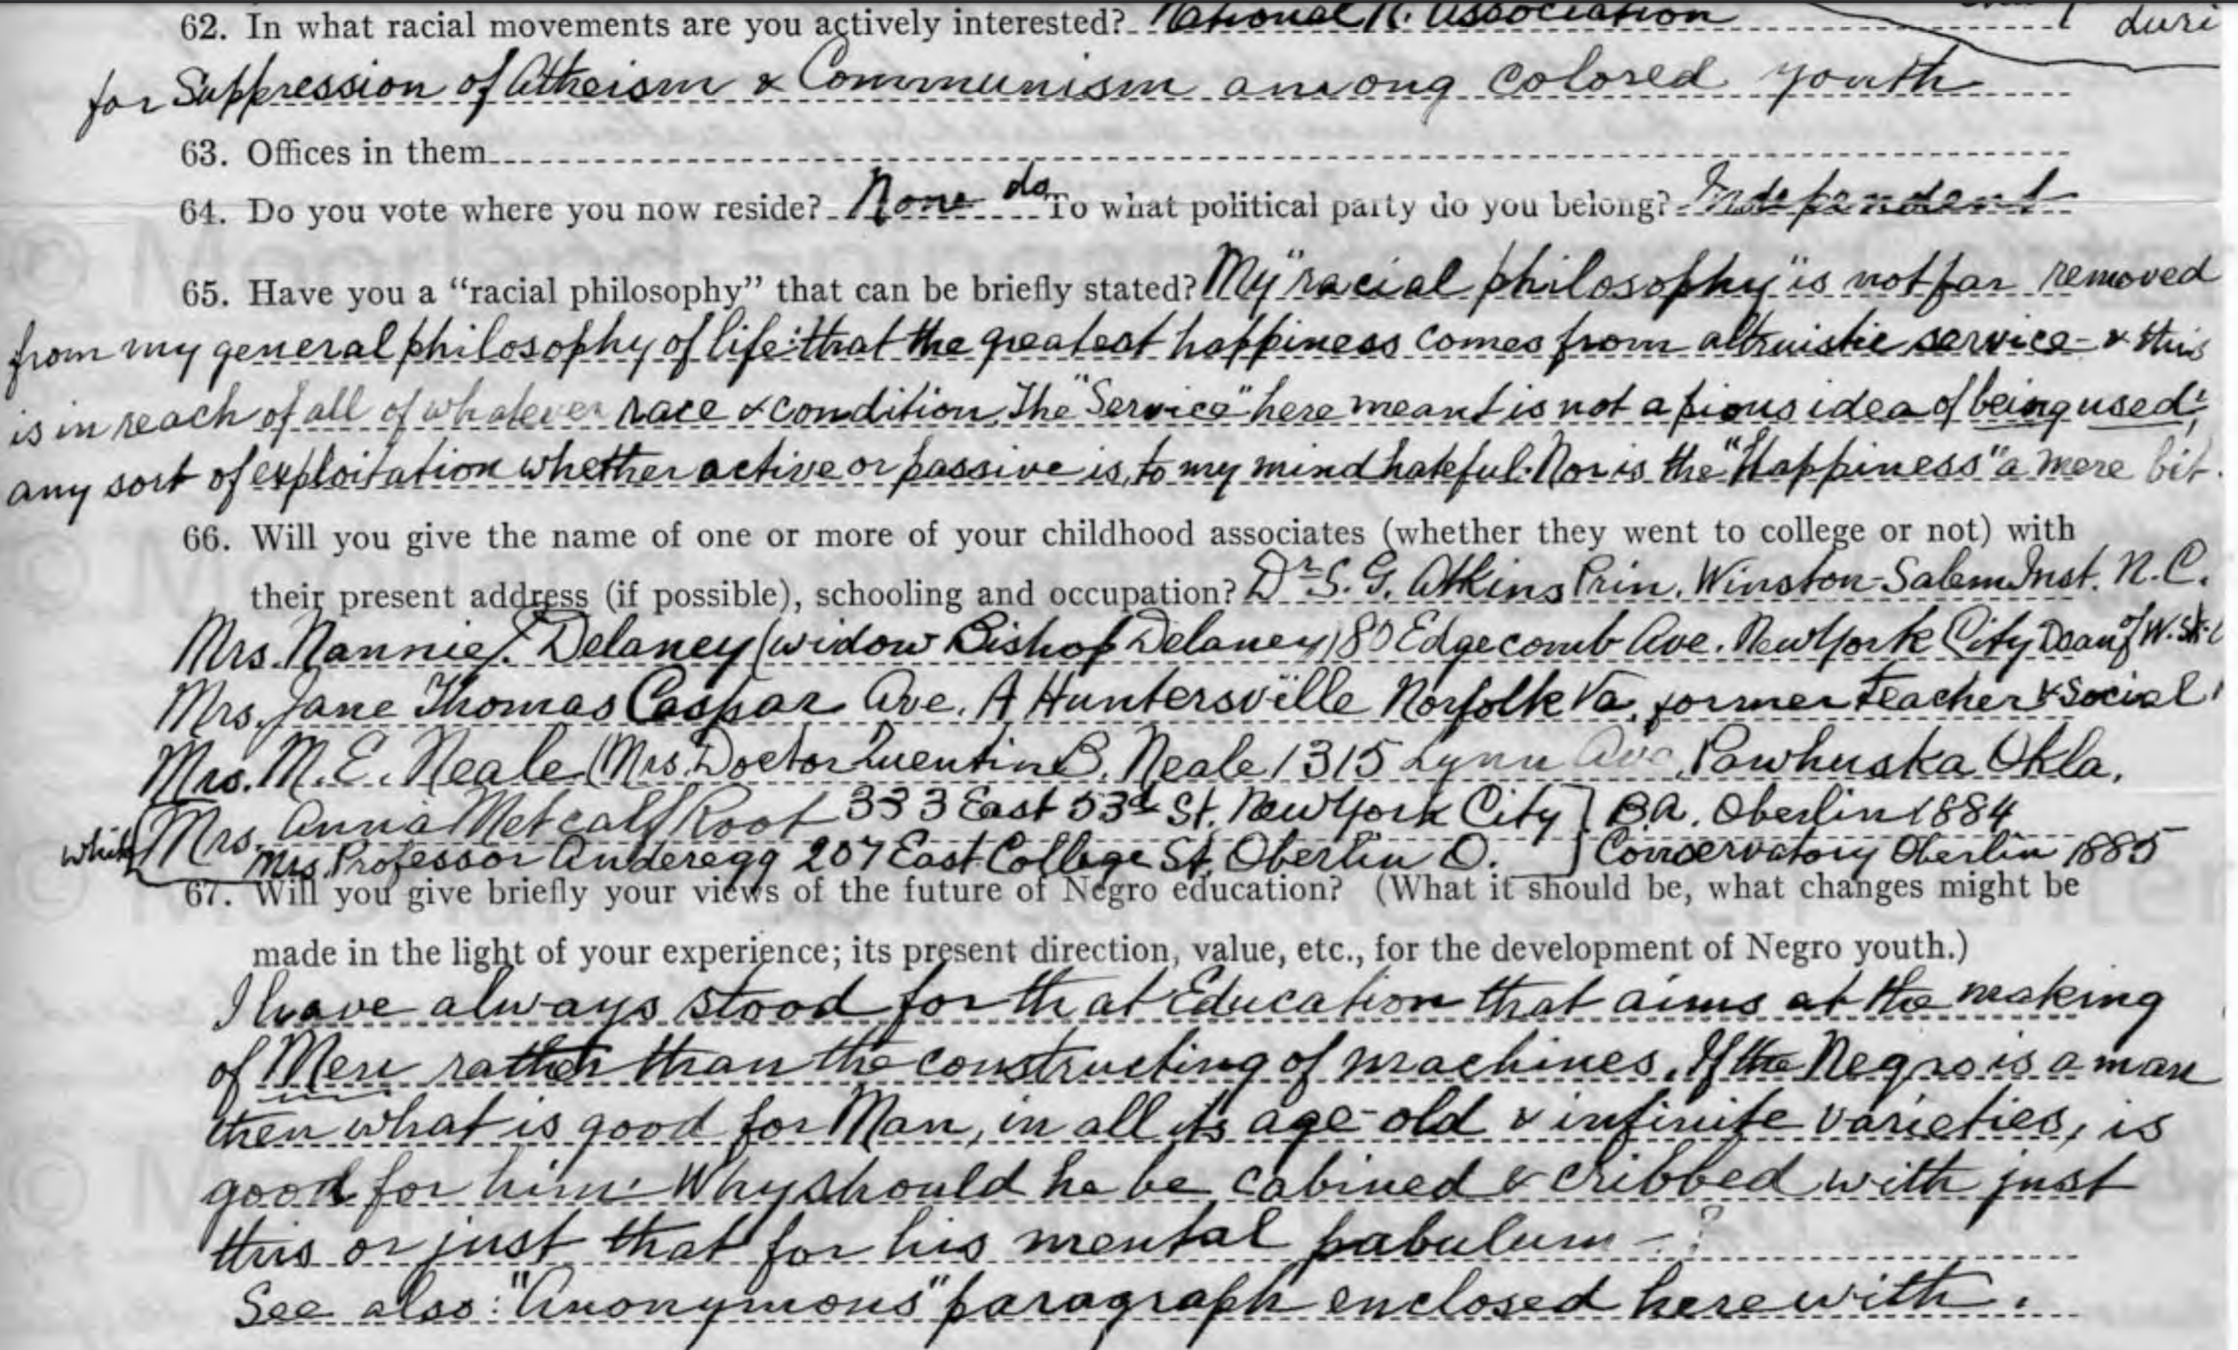 62. In what racial movements are you actively interested? National R. Association
for Suppression of Atheism & Communism among colored youth
63. Offices in them
64. Do you vote where you now reside? None do To what political party do you belong? Independent
65. Have you a “racial philosophy” that can be briefly stated? My "racial philosophy" is not far removed
from my general philosophy of life: that the greatest happiness comes from altruistic service - & this
is in reach of all of whatever race & condition. The "Service" here meant is not a pious idea of being used;
any sort of exploitation whether active or passive is, to my mind hateful. Nor is the "Happiness" a mere bit
66. Will you give the name of one or more of your childhood associates (whether they went to college or not) with
their present address (if possible), schooling and occupation? Dr. S. G. Atkins Prin. Winston-Salem Inst. N.C.
Mrs. Nannie J. Delaney (widow Bishop Delaney) 80 Edgecomb Ave. New York City Dean of W.
Mrs. Jane Thomas Caspar Ave. A Huntersville Norfolk Va. former teacher & Social
Mrs. M. E. Neale (Mrs. Doctor Quentin B. Neale 1315 Lynn Ave. Pawhuska Okla.
Mrs. Anna Metcalf Root 333 East 53d St. New York City } B.A. Oberlin 1884
white Mrs. Professor Anderegg 207 East College St. Oberlin O. } Conservatory Oberlin 1885
67. Will you give briefly your views of the future of Negro education? (What it should be, what changes might be
made in the light of your experience; its present direction, value, etc., for the development of Negro youth.)
I have always stood for that Education that aims at the making
of Men rather than the constructing of machines. If the Negro is a man
then what is good for Man, in all its age-old & infinite varieties, is
good for him. Why should he be cabined & cribbed with just
this or just that for his mental pabulum - ?
See also: "Anonymous" paragraph enclosed herewith.